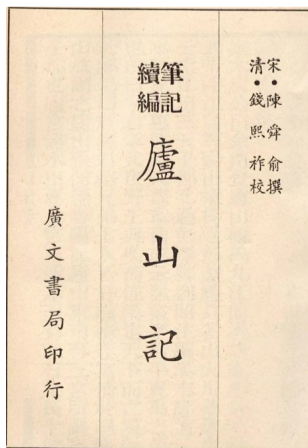 宋•陳舜俞撰
清•錢熙祚校
筆記
續編
廬山記
廣文書局印行